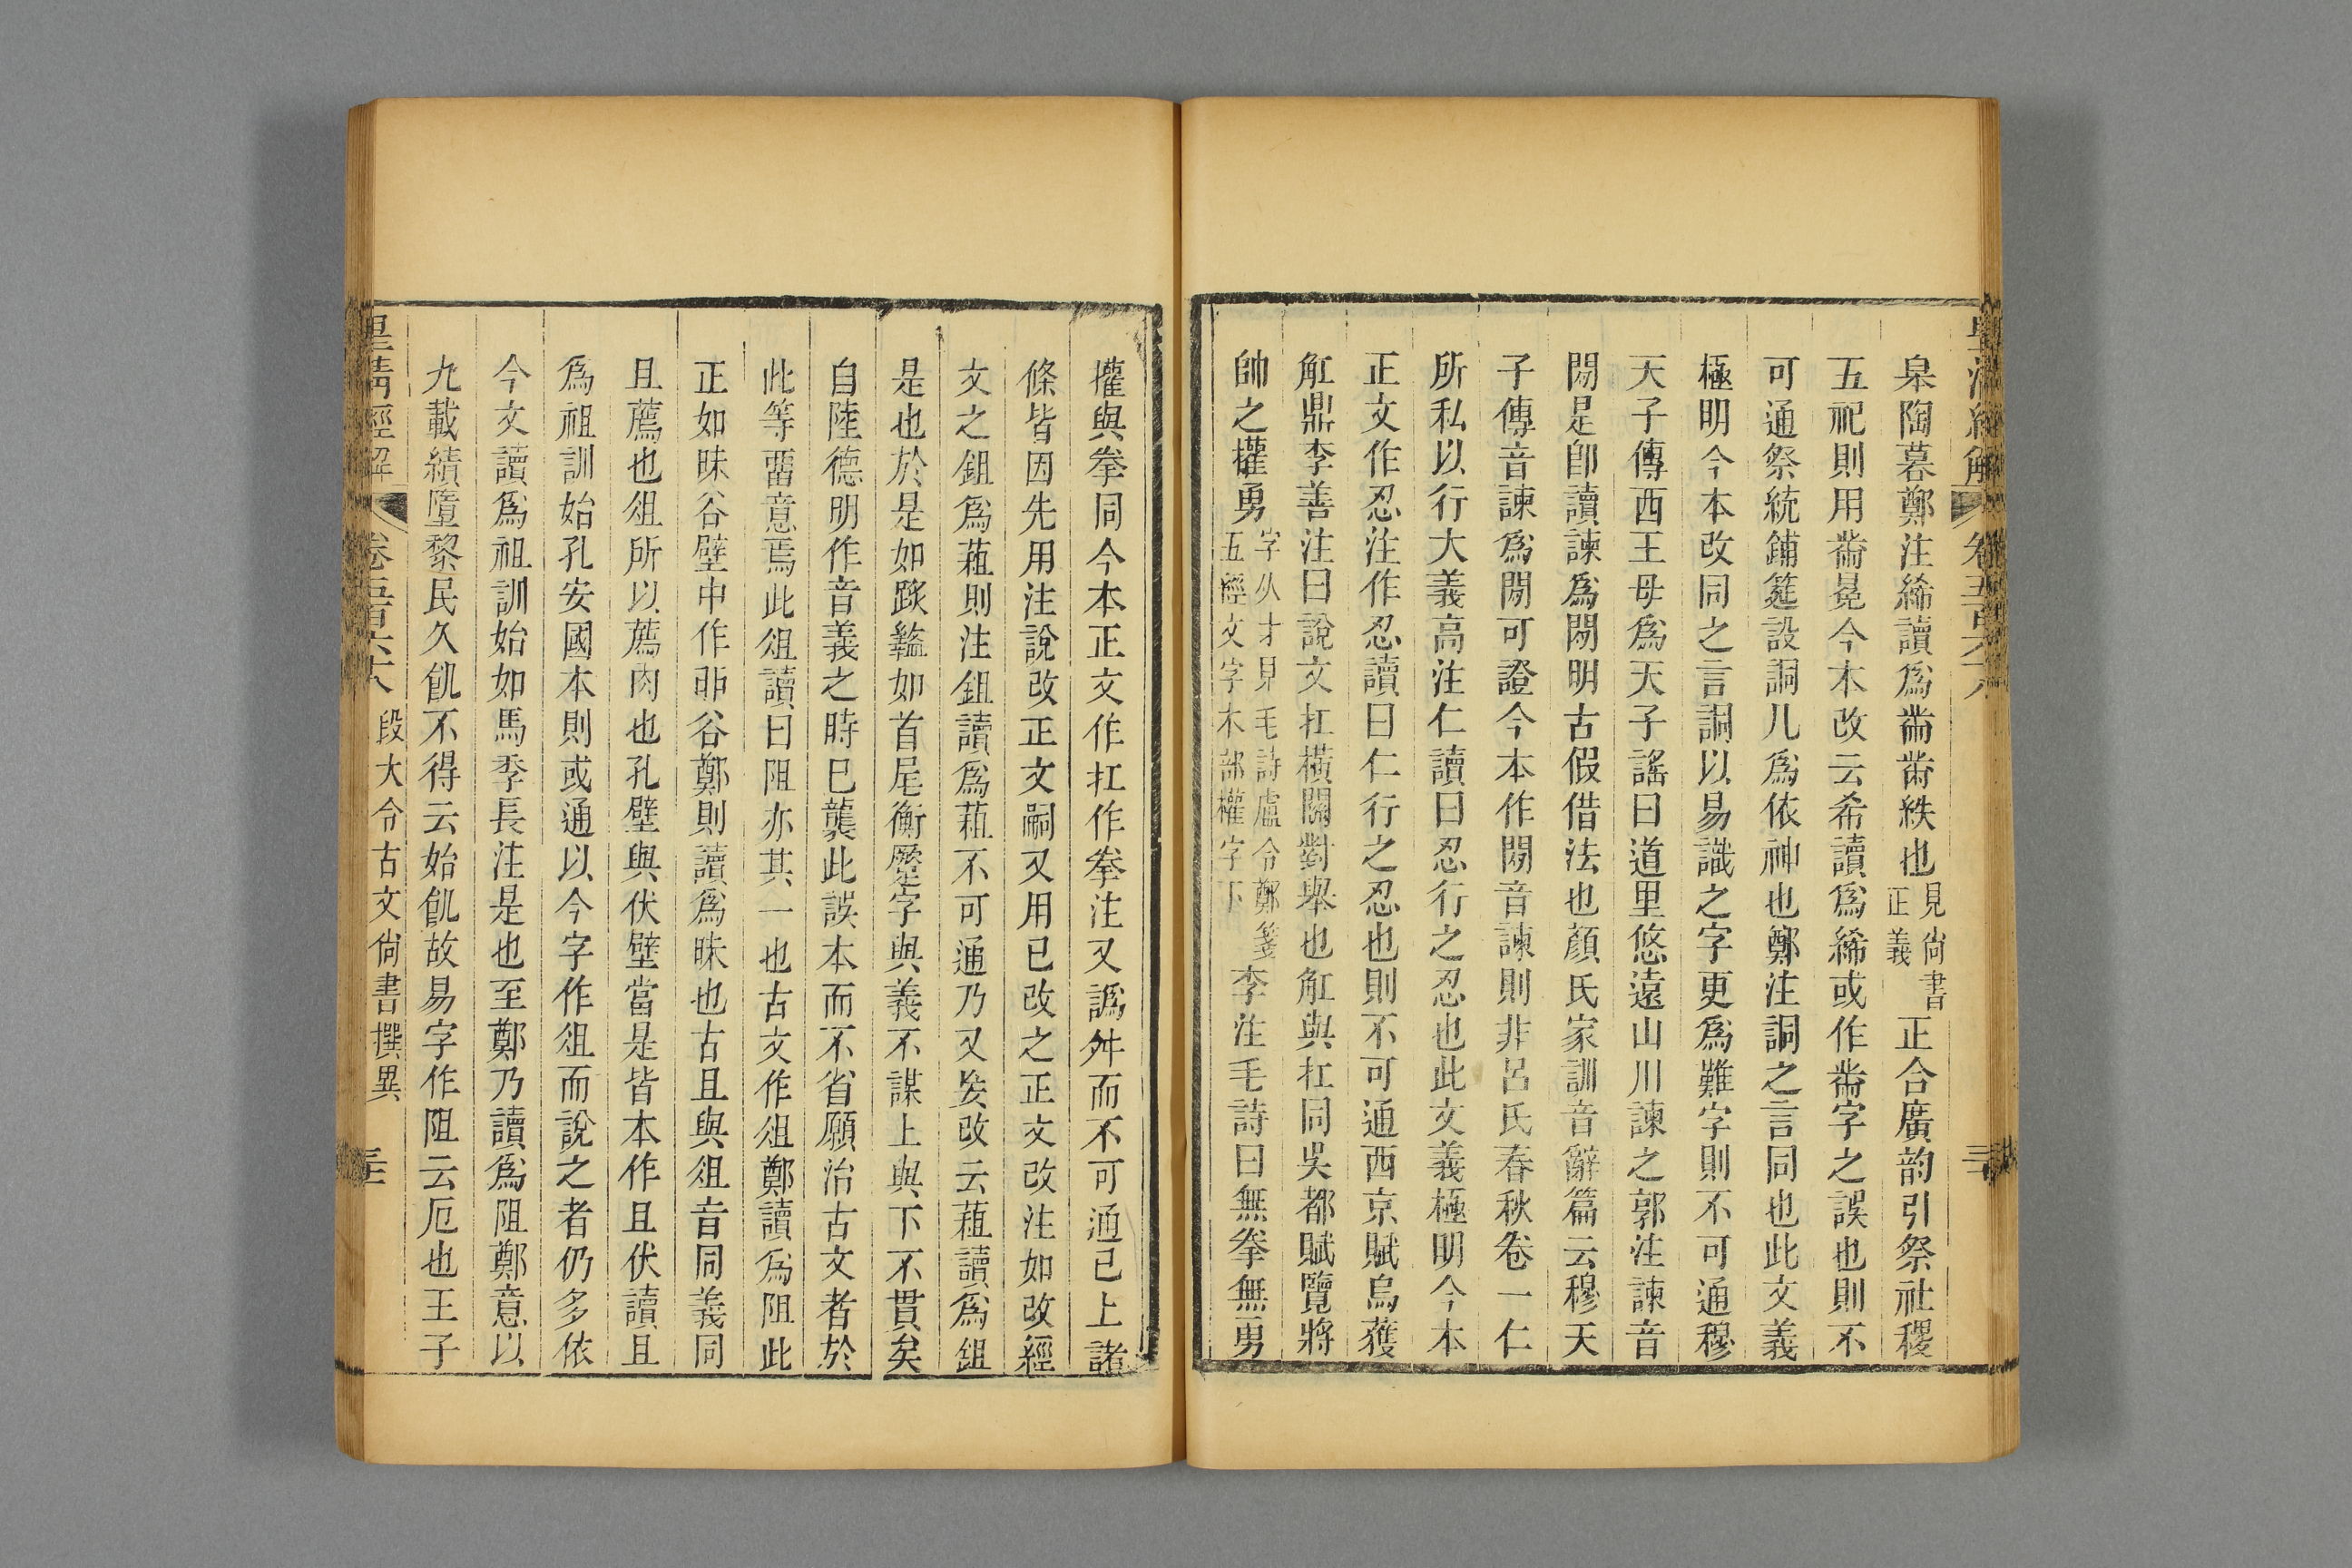 皋陶暮鄭注絺讀爲黹黹紩也見尚書正義正合廣韵引祭社稷
五祀則用黹冕今本改云希讀爲絺或作黹字之誤也則不
可通祭統鋪筵設詷几爲依神也鄭注詷之言同也此文義
極明今本改同之言詷以易識之字更爲難字則不可通穆
天子傳西王母爲天子謠曰道里悠遠山川諫之郭注諫音
閒是卽讀諫爲閒明古假借法也顏氏家訓音辭篇云穆天
子傳音諫爲閒可證今本作閒音諫則非呂氏春秋卷一仁
所私以行大義高注仁讀曰忍行之忍也此文義極明今本
正文作忍注作忍讀曰仁行之忍也則不可通西京賦烏獲
舡鼎李善注曰說文扛橫關對舉也舡與扛同吳都賦覽將
帥之權勇字从才見毛詩盧令鄭箋五經文字木部權字下李注毛詩曰無拳無勇
權與拳同今本正文作扛作拳注又譌舛而不可通已上諸
條皆因先用注說改正文嗣又用已改之正文改注如改經
文之鉏爲蒩則注鉏讀爲蒩不可通乃又妄改云蒩讀爲鉏
是也於是如跋鼇如首尾衡壓字與義不謀上與下不貫矣
自陸德明作音義之時已襲此誤本而不省願治古文者於
此等畱意焉此俎讀曰阻亦其一也古文作俎鄭讀爲阻此
正如昧谷壁中作戼谷鄭則讀爲昧也古且與俎音同義同
且薦也俎所以薦肉也孔壁與伏壁當是皆本作且伏讀且
爲祖訓始孔安國本則或通以今字作俎而說之者仍多依
今文讀爲祖訓始如馬季長注是也至鄭乃讀爲阻鄭意以
九載績墮黎民久飢不得云始飢故易字作阻云厄也王子
皇清經解 卷五百六十八 段大令古文尙書撰異 三